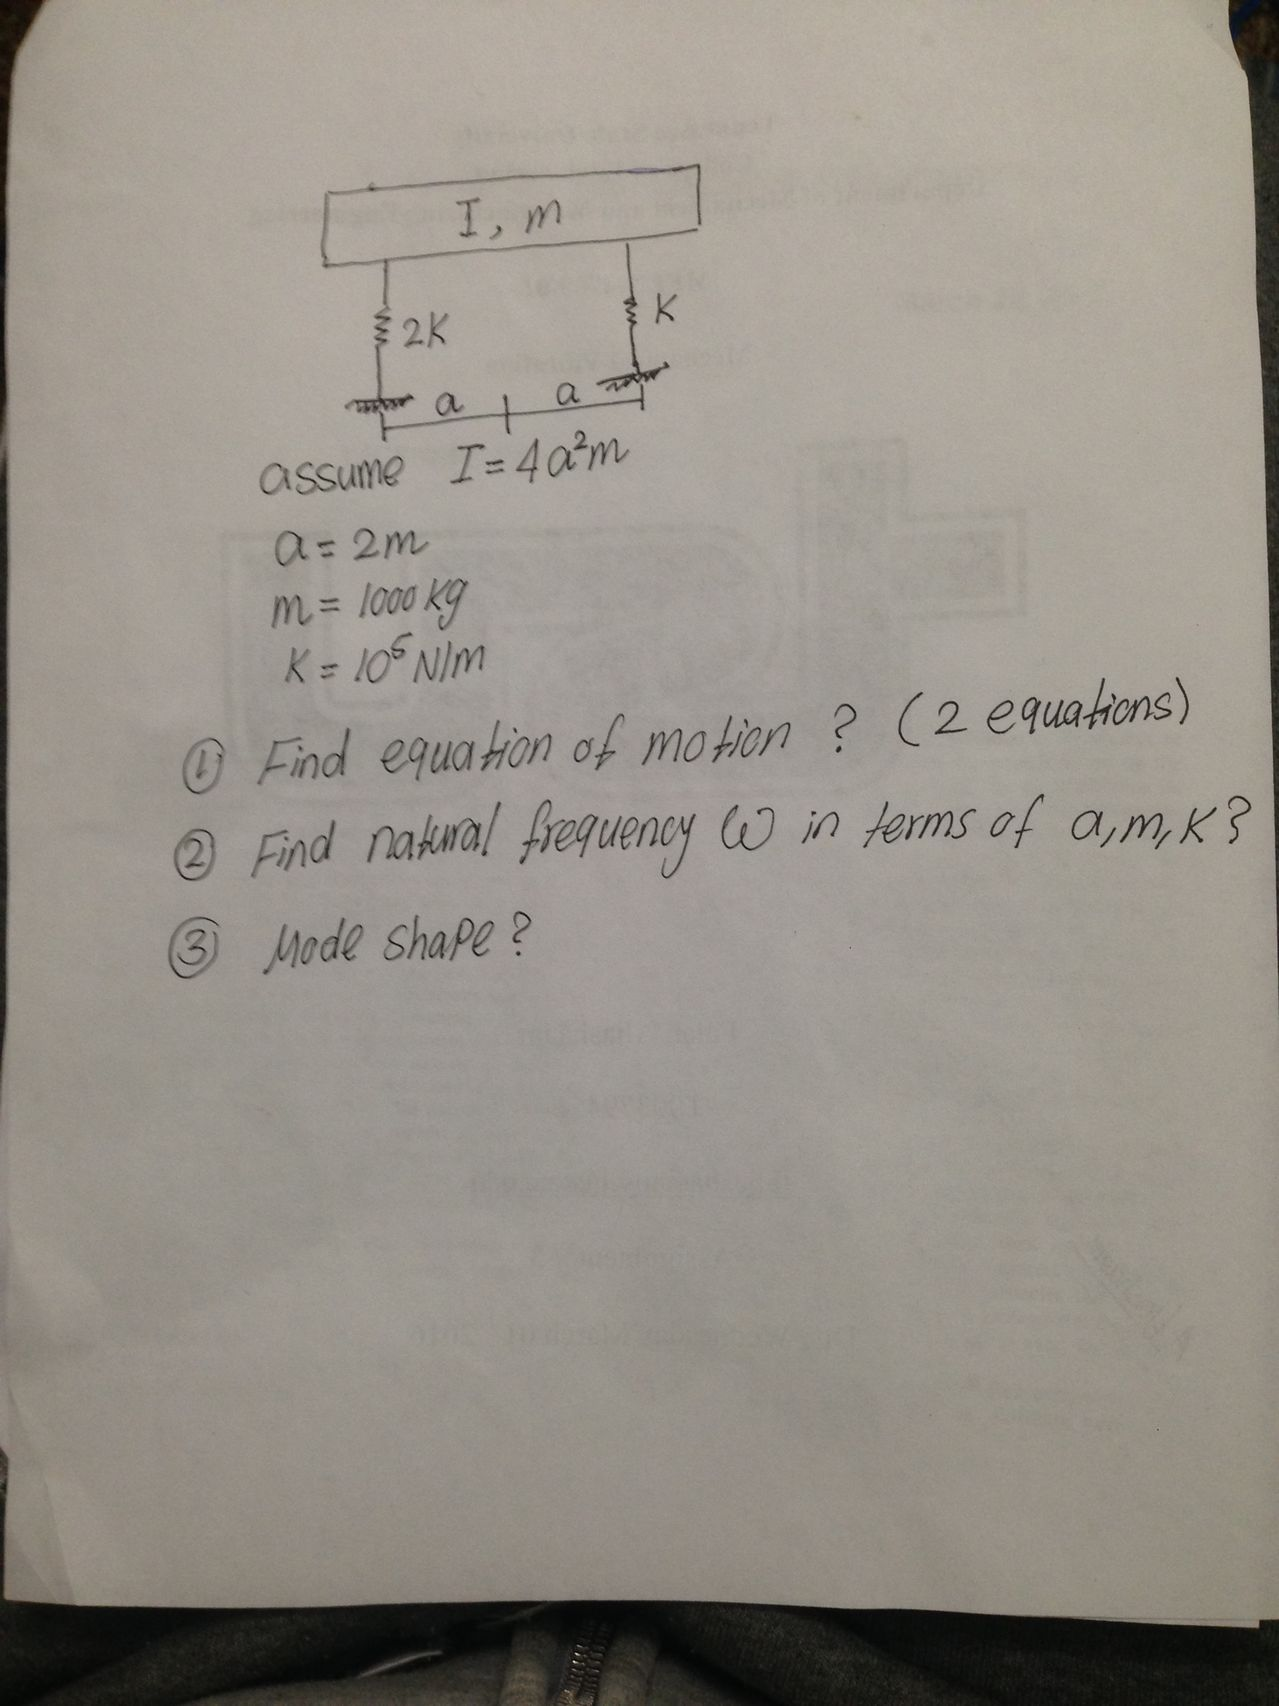 I, m
2K
K
a
a
assume I = 4a²m
a = 2m
m = 1000 kg
K = 10⁵ N/m
① Find equation of motion ? (2 equations)
② Find natural frequency ω in terms of a, m, K ?
③ Mode shape ?